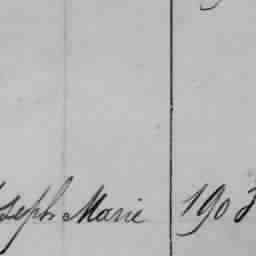 Joseph Marie 1903